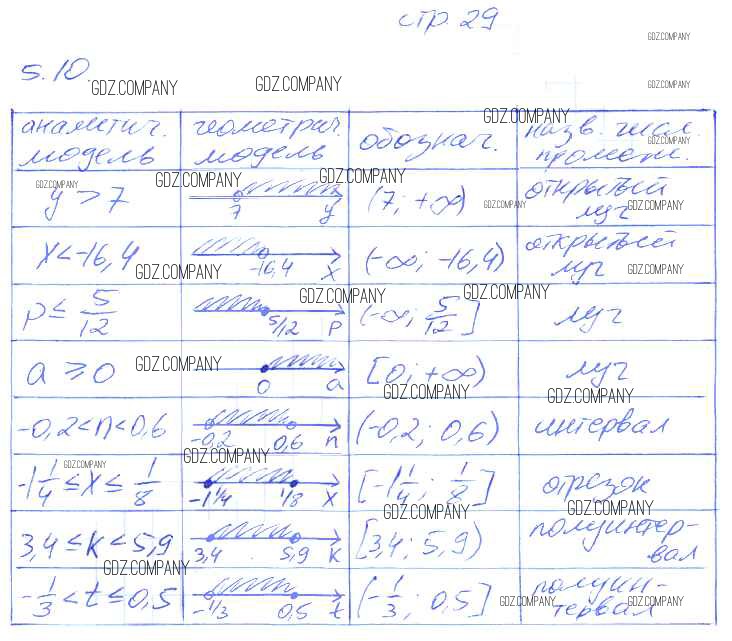 стр. 29
GDZ.COMPANY
5.10
GDZ.COMPANY
GDZ.COMPANY
GDZ.COMPANY
GDZ.COMPANY
аналитич. модель | геометрич. модель | обознач. | назв. числ. промеж.
GDZ.COMPANY
GDZ.COMPANY
GDZ.COMPANY
GDZ.COMPANY
y > 7 | 7 y | (7; +∞) | открытый луч
GDZ.COMPANY
GDZ.COMPANY
x < -16,4 | -16,4 x | (-∞; -16,4) | открытый луч
GDZ.COMPANY
GDZ.COMPANY
p ≤ 5/12 | 5/12 p | (-∞; 5/12] | луч
GDZ.COMPANY
GDZ.COMPANY
a ≥ 0 | 0 a | [0; +∞) | луч
GDZ.COMPANY
GDZ.COMPANY
GDZ.COMPANY
-0,2 < n < 0,6 | -0,2 0,6 n | (-0,2; 0,6) | интервал
GDZ.COMPANY
GDZ.COMPANY
-1 1/4 ≤ x ≤ 1/8 | -1 1/4 1/8 x | [-1 1/4; 1/8] | отрезок
GDZ.COMPANY
GDZ.COMPANY
3,4 ≤ k < 5,9 | 3,4 5,9 k | [3,4; 5,9) | полуинтер-вал
GDZ.COMPANY
-1/3 < t ≤ 0,5 | -1/3 0,5 t | (-1/3; 0,5] | полуин-тервал
GDZ.COMPANY
GDZ.COMPANY